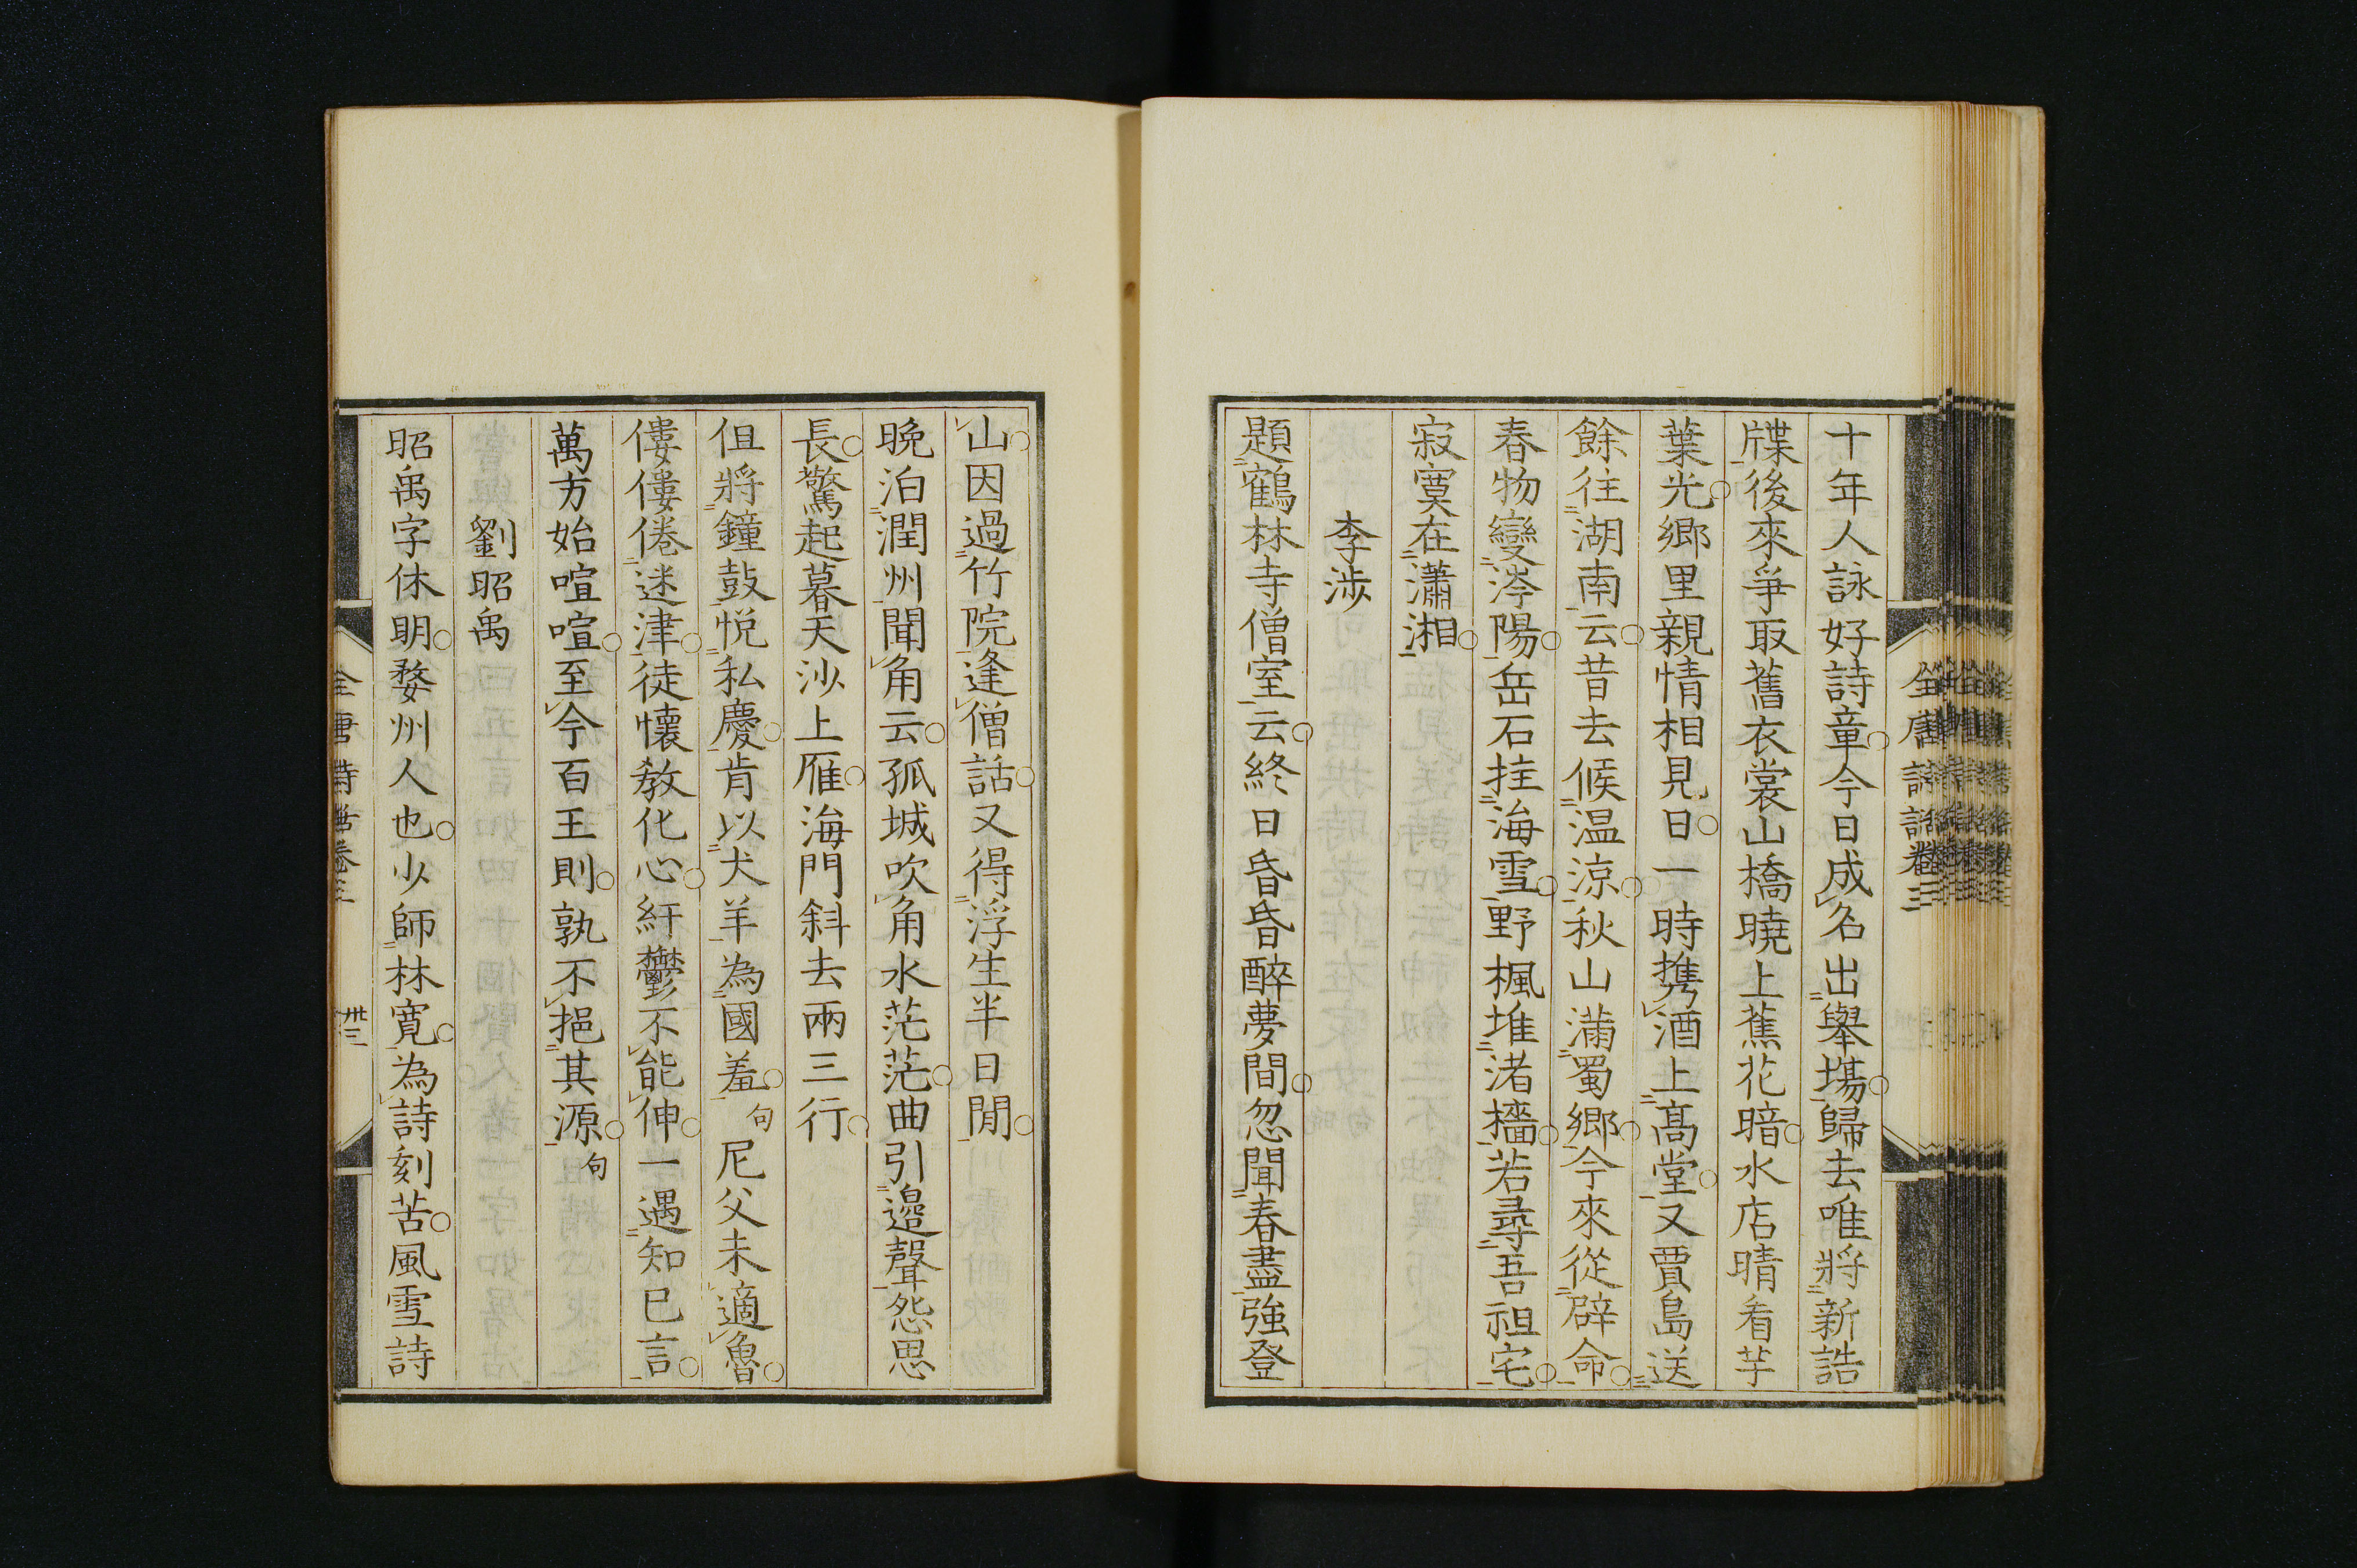 十年人詠好詩童今日成名出舉塲歸去唯將新誥
牒後來爭取舊衣裳山橋曉上蕉花暗水店晴看芋
葉光鄉里親情相見日一時携酒上髙堂又賈島送
餘往湖南云昔去候温涼秋山滿蜀鄉今來從辟命
春物變涔陽岳石挂海雪野楓堆渚檣若尋吾祖宅
寂寞在瀟湘
李涉
題鶴林寺僧室云終日昏昏醉夢間忽聞春盡強登
山因過竹院逢僧話又得浮生半日閒
晩泊潤州聞角云孤城吹角水茫茫曲引邉聲怨思
長驚起暮天沙上雁海門斜去兩三行
但將鐘鼓悦私慶肯以犬羊為國羞句尼父未適魯
僂僂倦迷津徒懷教化心紆鬱不能伸一遇知已言
萬方始喧喧至今百王則孰不挹其源句
劉昭禹
昭禹字休明婺州人也少師林寛為詩刻苦風雪詩
全唐詩話卷三
全唐詩話卷三 卅三